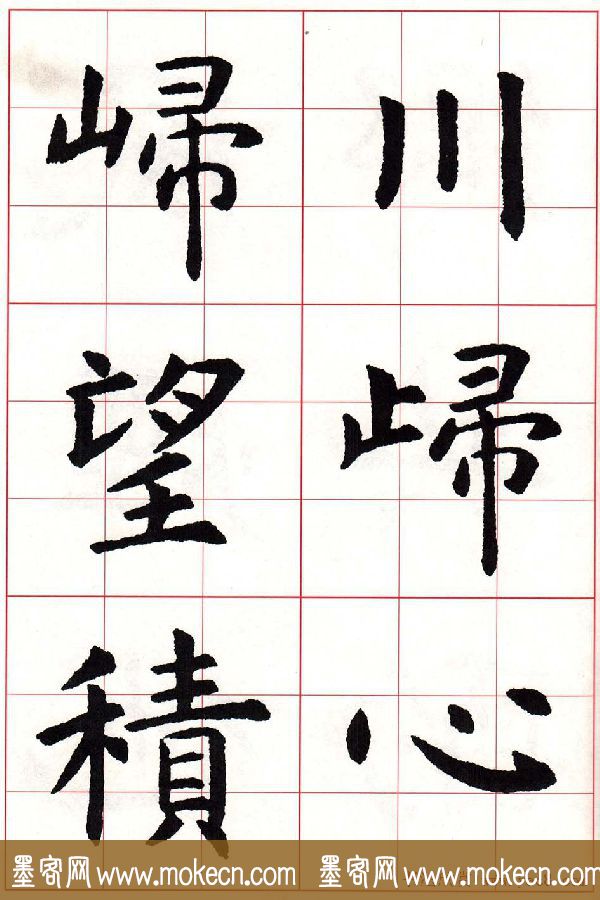 川㱕心
㱕望積
墨客网 www.mokecn.com 墨客网 www.mokecn.com